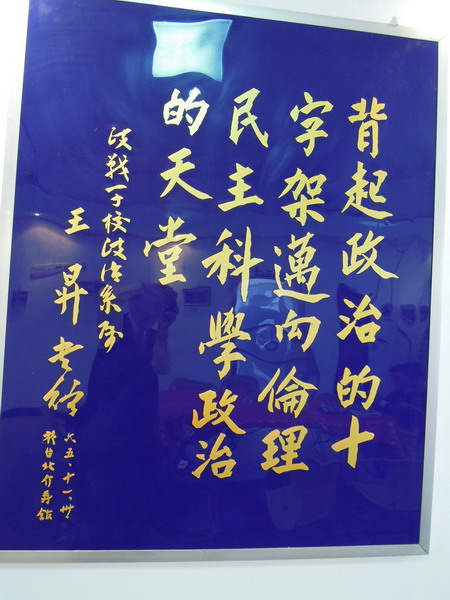 背起政治的十
字架邁向倫理
民主科學政治
的天堂
政戰學校政治系勉
王昇書贈
六五、十一、卅
於台北介壽館